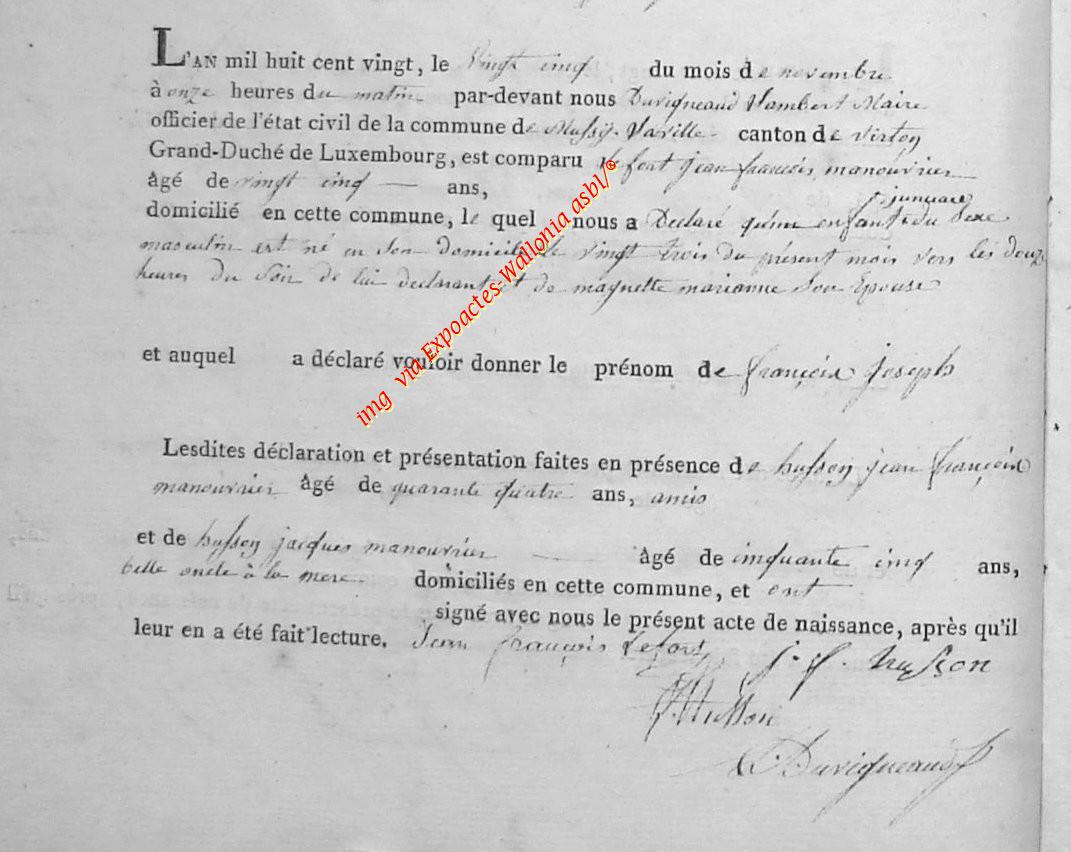 L'AN mil huit cent vingt, le vingt cinq du mois de novembre
à onze heures du matin par-devant nous Duvigneaud Lambert Maire
officier de l'état civil de la commune de Mussy-Laville canton de Virton
Grand-Duché de Luxembourg, est comparu lefort jean françois, manouvrier
âgé de vingt cinq ans,
domicilié en cette commune, le quel nous a Declaré qu'un enfant du Sexe
masculin est né en son domicile le vingt trois du présent mois vers les douze
heures du Soir de lui declarant et de maquette marianne Son Epouse
et auquel a déclaré vouloir donner le prénom de françois joseph
Lesdites déclaration et présentation faites en présence de husson jean françois
manouvrier âgé de quarante quatre ans, amis
et de husson jacques manouvrier âgé de cinquante cinq ans,
belle oncle à la mere domiciliés en cette commune, et ont
signé avec nous le présent acte de naissance, après qu'il
leur en a été fait lecture. Jean françois Lefort J. f. husson
J. Husson
L. Duvigneaud
img via Expoactes-Wallonia asbl/®